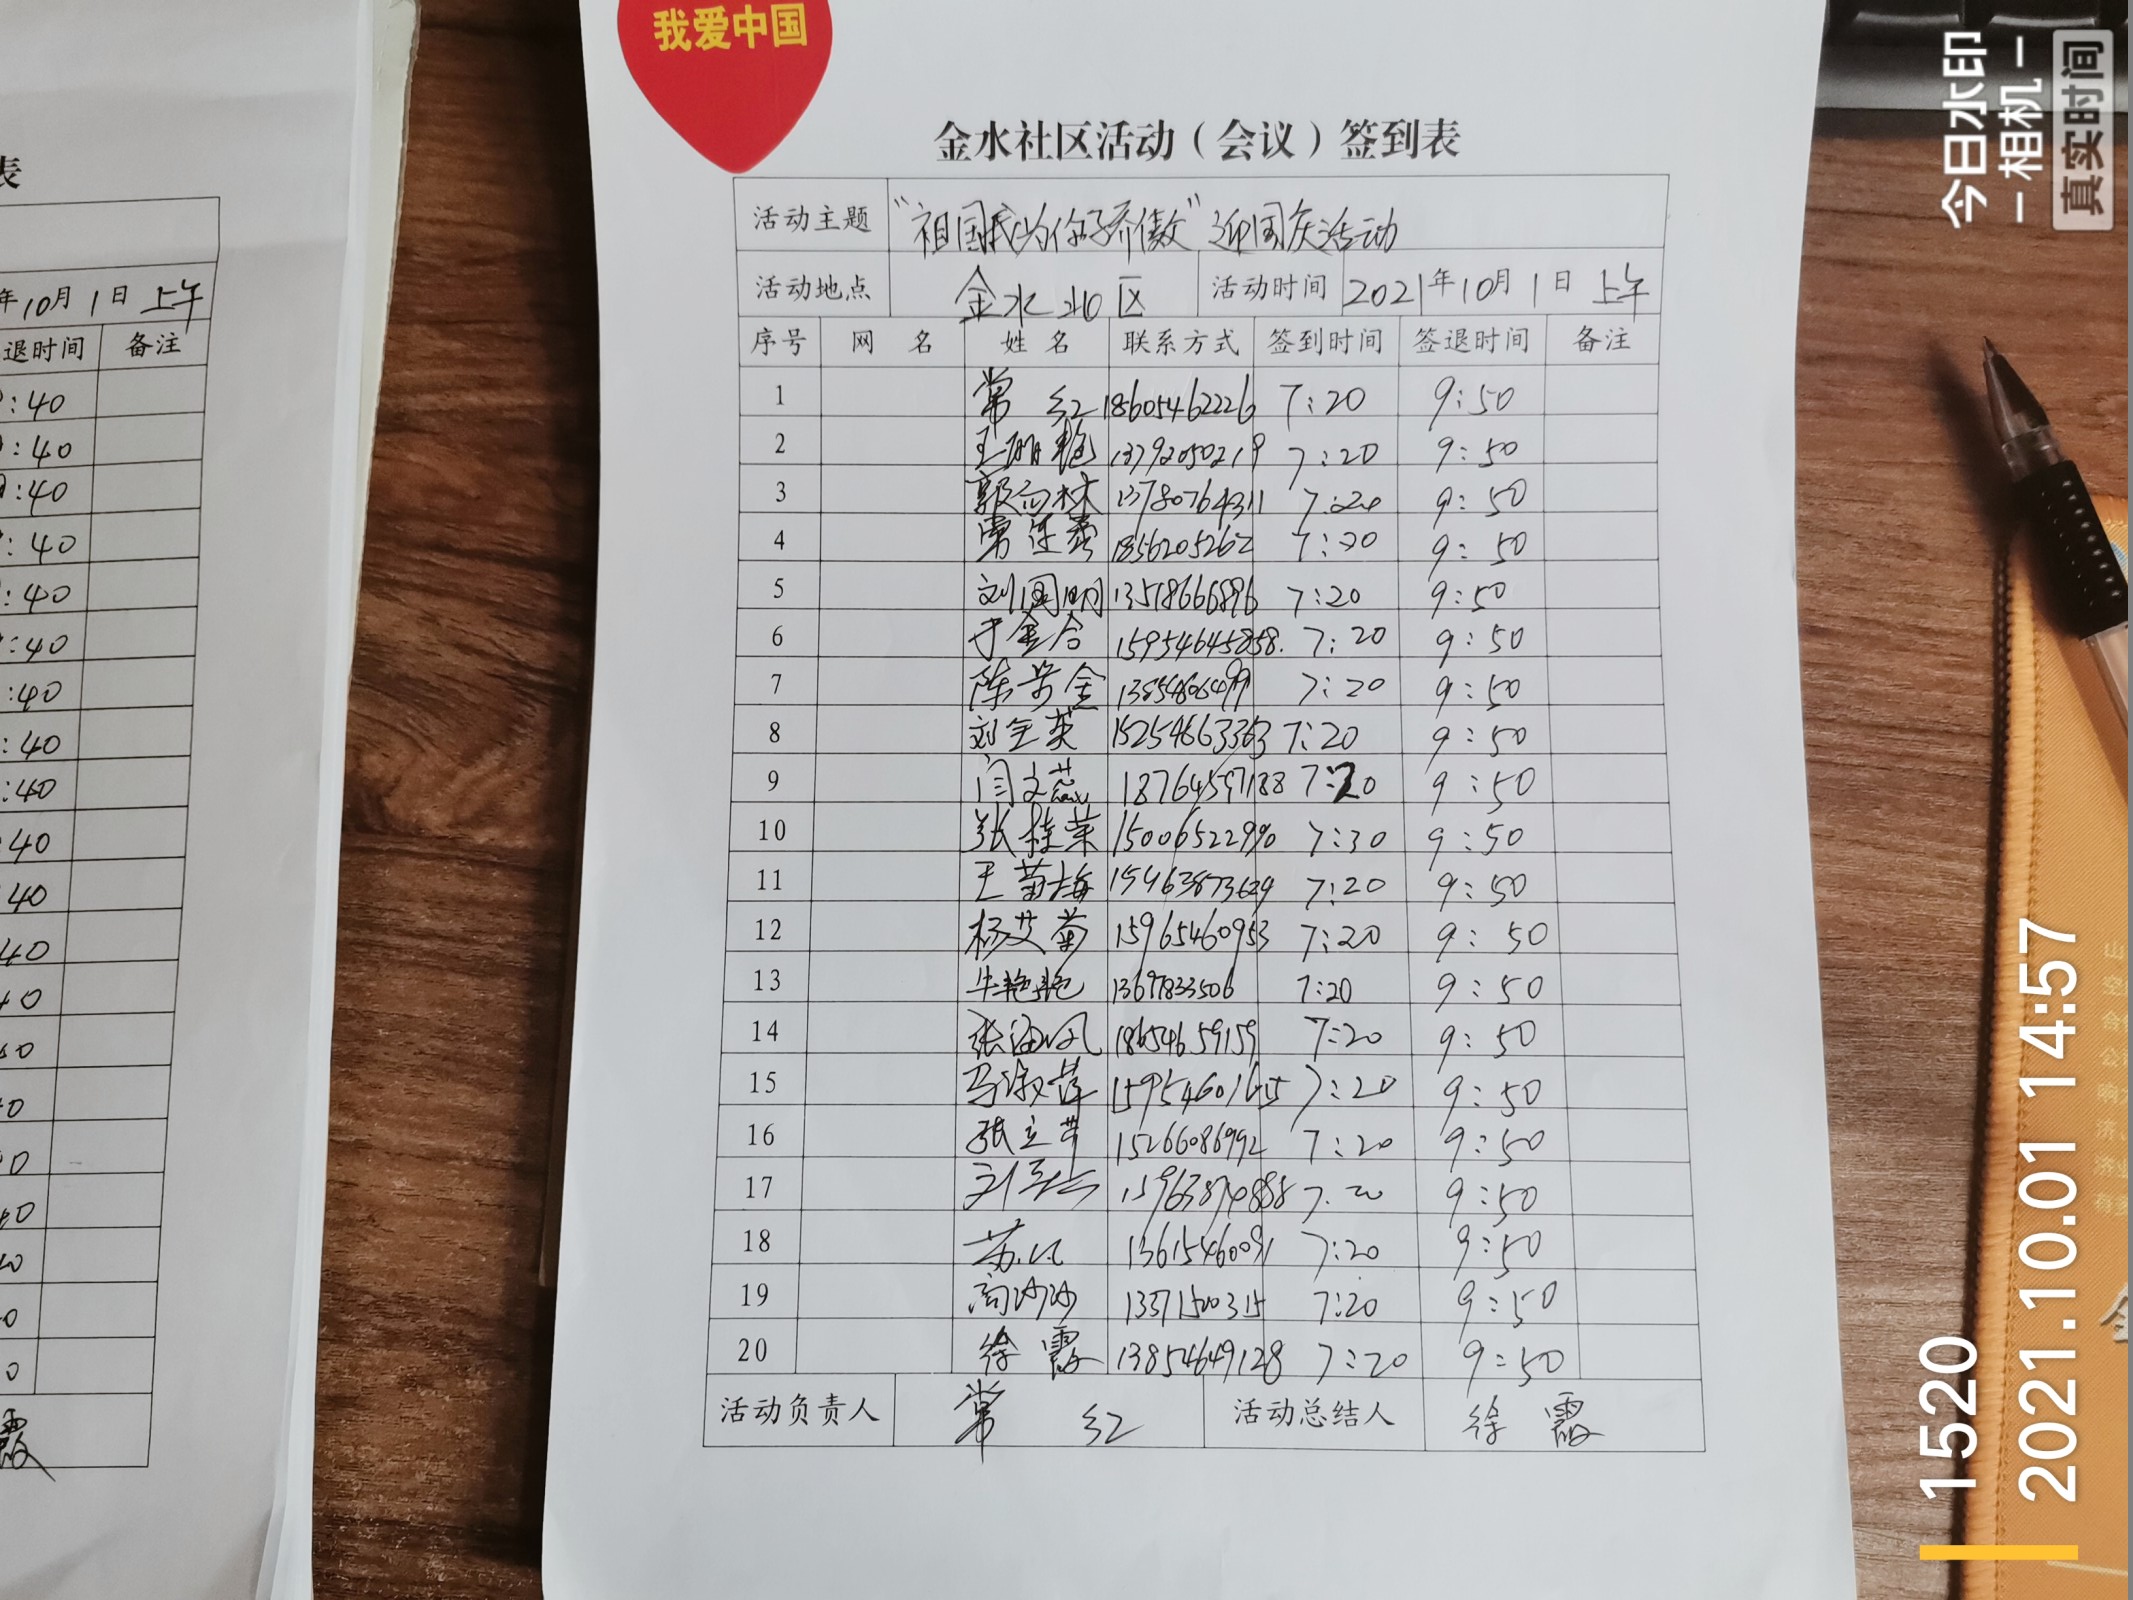 我爱中国
金水社区活动（会议）签到表
活动主题 "祖国我为你骄傲" 迎国庆活动
活动地点 金水北区 活动时间 2021年10月1日 上午
序号 网名 姓名 联系方式 签到时间 签退时间 备注
1 常红 18605462226 7:20 9:50
2 王丽艳 13792050219 7:20 9:50
3 13780764311 7:20 9:50
4 7:20 9:50
5 刘国明 13518666896 7:20 9:50
6 于金合 15954645858. 7:20 9:50
7 陈芳金 7:20 9:50
8 刘金英 15254663363 7:20 9:50
9 闫文蕊 18764597188 7:20 9:50
10 张桂荣 15006522990 7:30 9:50
11 王菊梅 15463873629 7:20 9:50
12 杨艾菊 15965460953 7:20 9:50
13 牛艳艳 13697833506 7:20 9:50
14 张海风 18654659159 7:20 9:50
15 马淑萍 7:20 9:50
16 张立芹 15266086992 7:20 9:50
17 15963874888 7:20 9:50
18 苏红 13615460091 7:20 9:50
19 高沙沙 13371500315 7:20 9:50
20 徐霞 13854649128 7:20 9:50
活动负责人 常红 活动总结人 徐霞
表
年10月1日 上午
退时间 备注
:40
:40
:40
:40
:40
:40
:40
:40
:40
:40
40
40
40
霞
今日水印
-相机-
真实时间
1520
2021.10.01 14:57